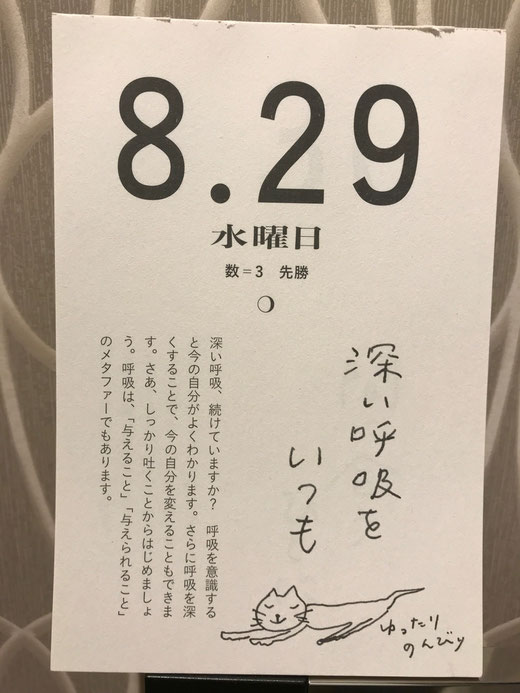 8.29
水曜日
数=3 先勝
深い呼吸を
いつも
深い呼吸、続けていますか? 呼吸を意識する
と今の自分がよくわかります。さらに呼吸を深
くすることで、今の自分を変えることもできま
す。さあ、しっかり吐くことからはじめましょ
う。呼吸は、「与えること」「与えられること」
のメタファーでもあります。
ゆったり
のんびり